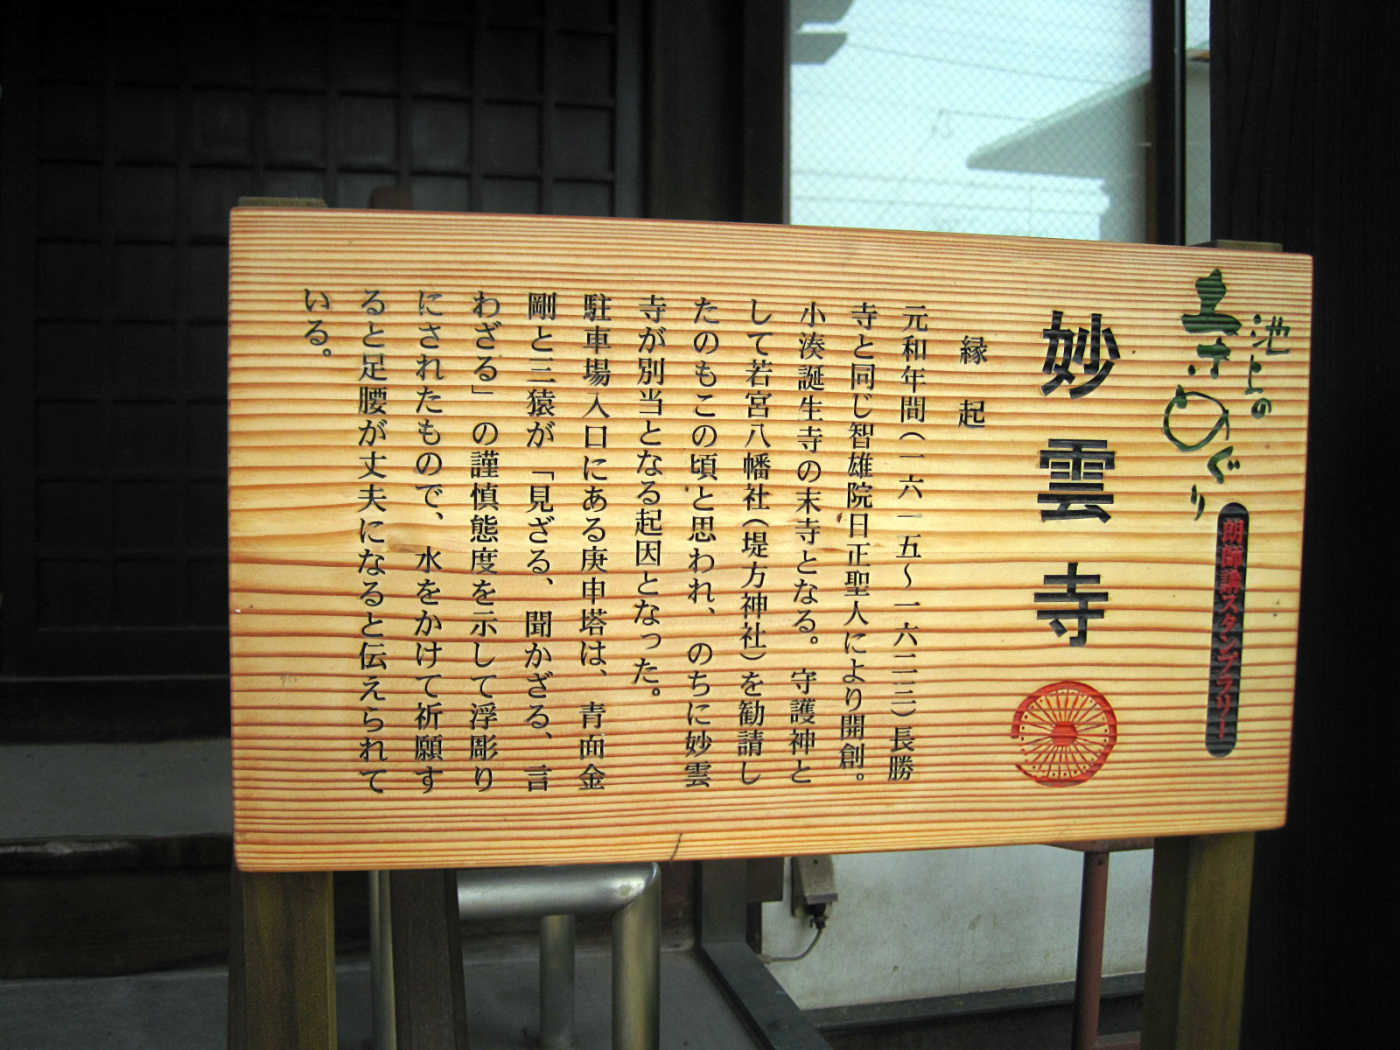 池上の
寺めぐり
朗師講スタンプラリー
妙雲寺
縁起
元和年間(一六一五～一六二三)長勝
寺と同じ智雄院日正聖人により開創。
小湊誕生寺の末寺となる。守護神と
して若宮八幡社(堤方神社)を勧請し
たのもこの頃と思われ、のちに妙雲
寺が別当となる起因となった。
駐車場入口にある庚申塔は、青面金
剛と三猿が「見ざる、聞かざる、言
わざる」の謹慎態度を示して浮彫り
にされたもので、水をかけて祈願す
ると足腰が丈夫になると伝えられて
いる。